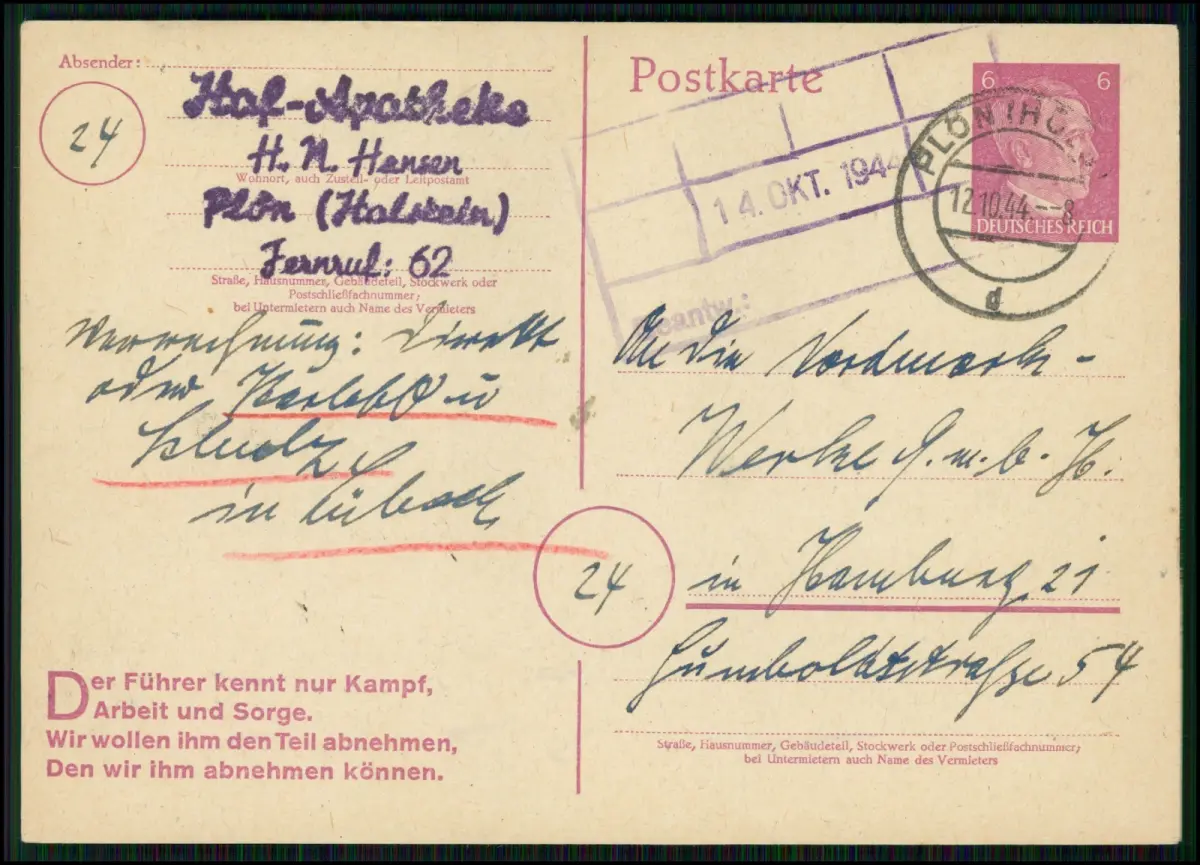 Absender:
24
Hof-Apotheke
H. N. Hansen
Wohnort, auch Zustell- oder Leitpostamt
Plön (Holstein)
Fernruf: 62
Straße, Hausnummer, Gebäudeteil, Stockwerk oder
Postschließfachnummer;
bei Untermietern auch Name des Vermieters
Verrechnung: Direkt
oder u
in Lübeck
Der Führer kennt nur Kampf,
Arbeit und Sorge.
Wir wollen ihm den Teil abnehmen,
Den wir ihm abnehmen können.
Postkarte
14. OKT. 1944
Beantw.:
6 6
DEUTSCHES REICH
PLÖN (HOLST)
12.10.44--8
d
An die Nordmark-
Werke G.m.b.H.
24
in Hamburg 21
Humboldtstraße 54
Straße, Hausnummer, Gebäudeteil, Stockwerk oder Postschließfachnummer;
bei Untermietern auch Name des Vermieters